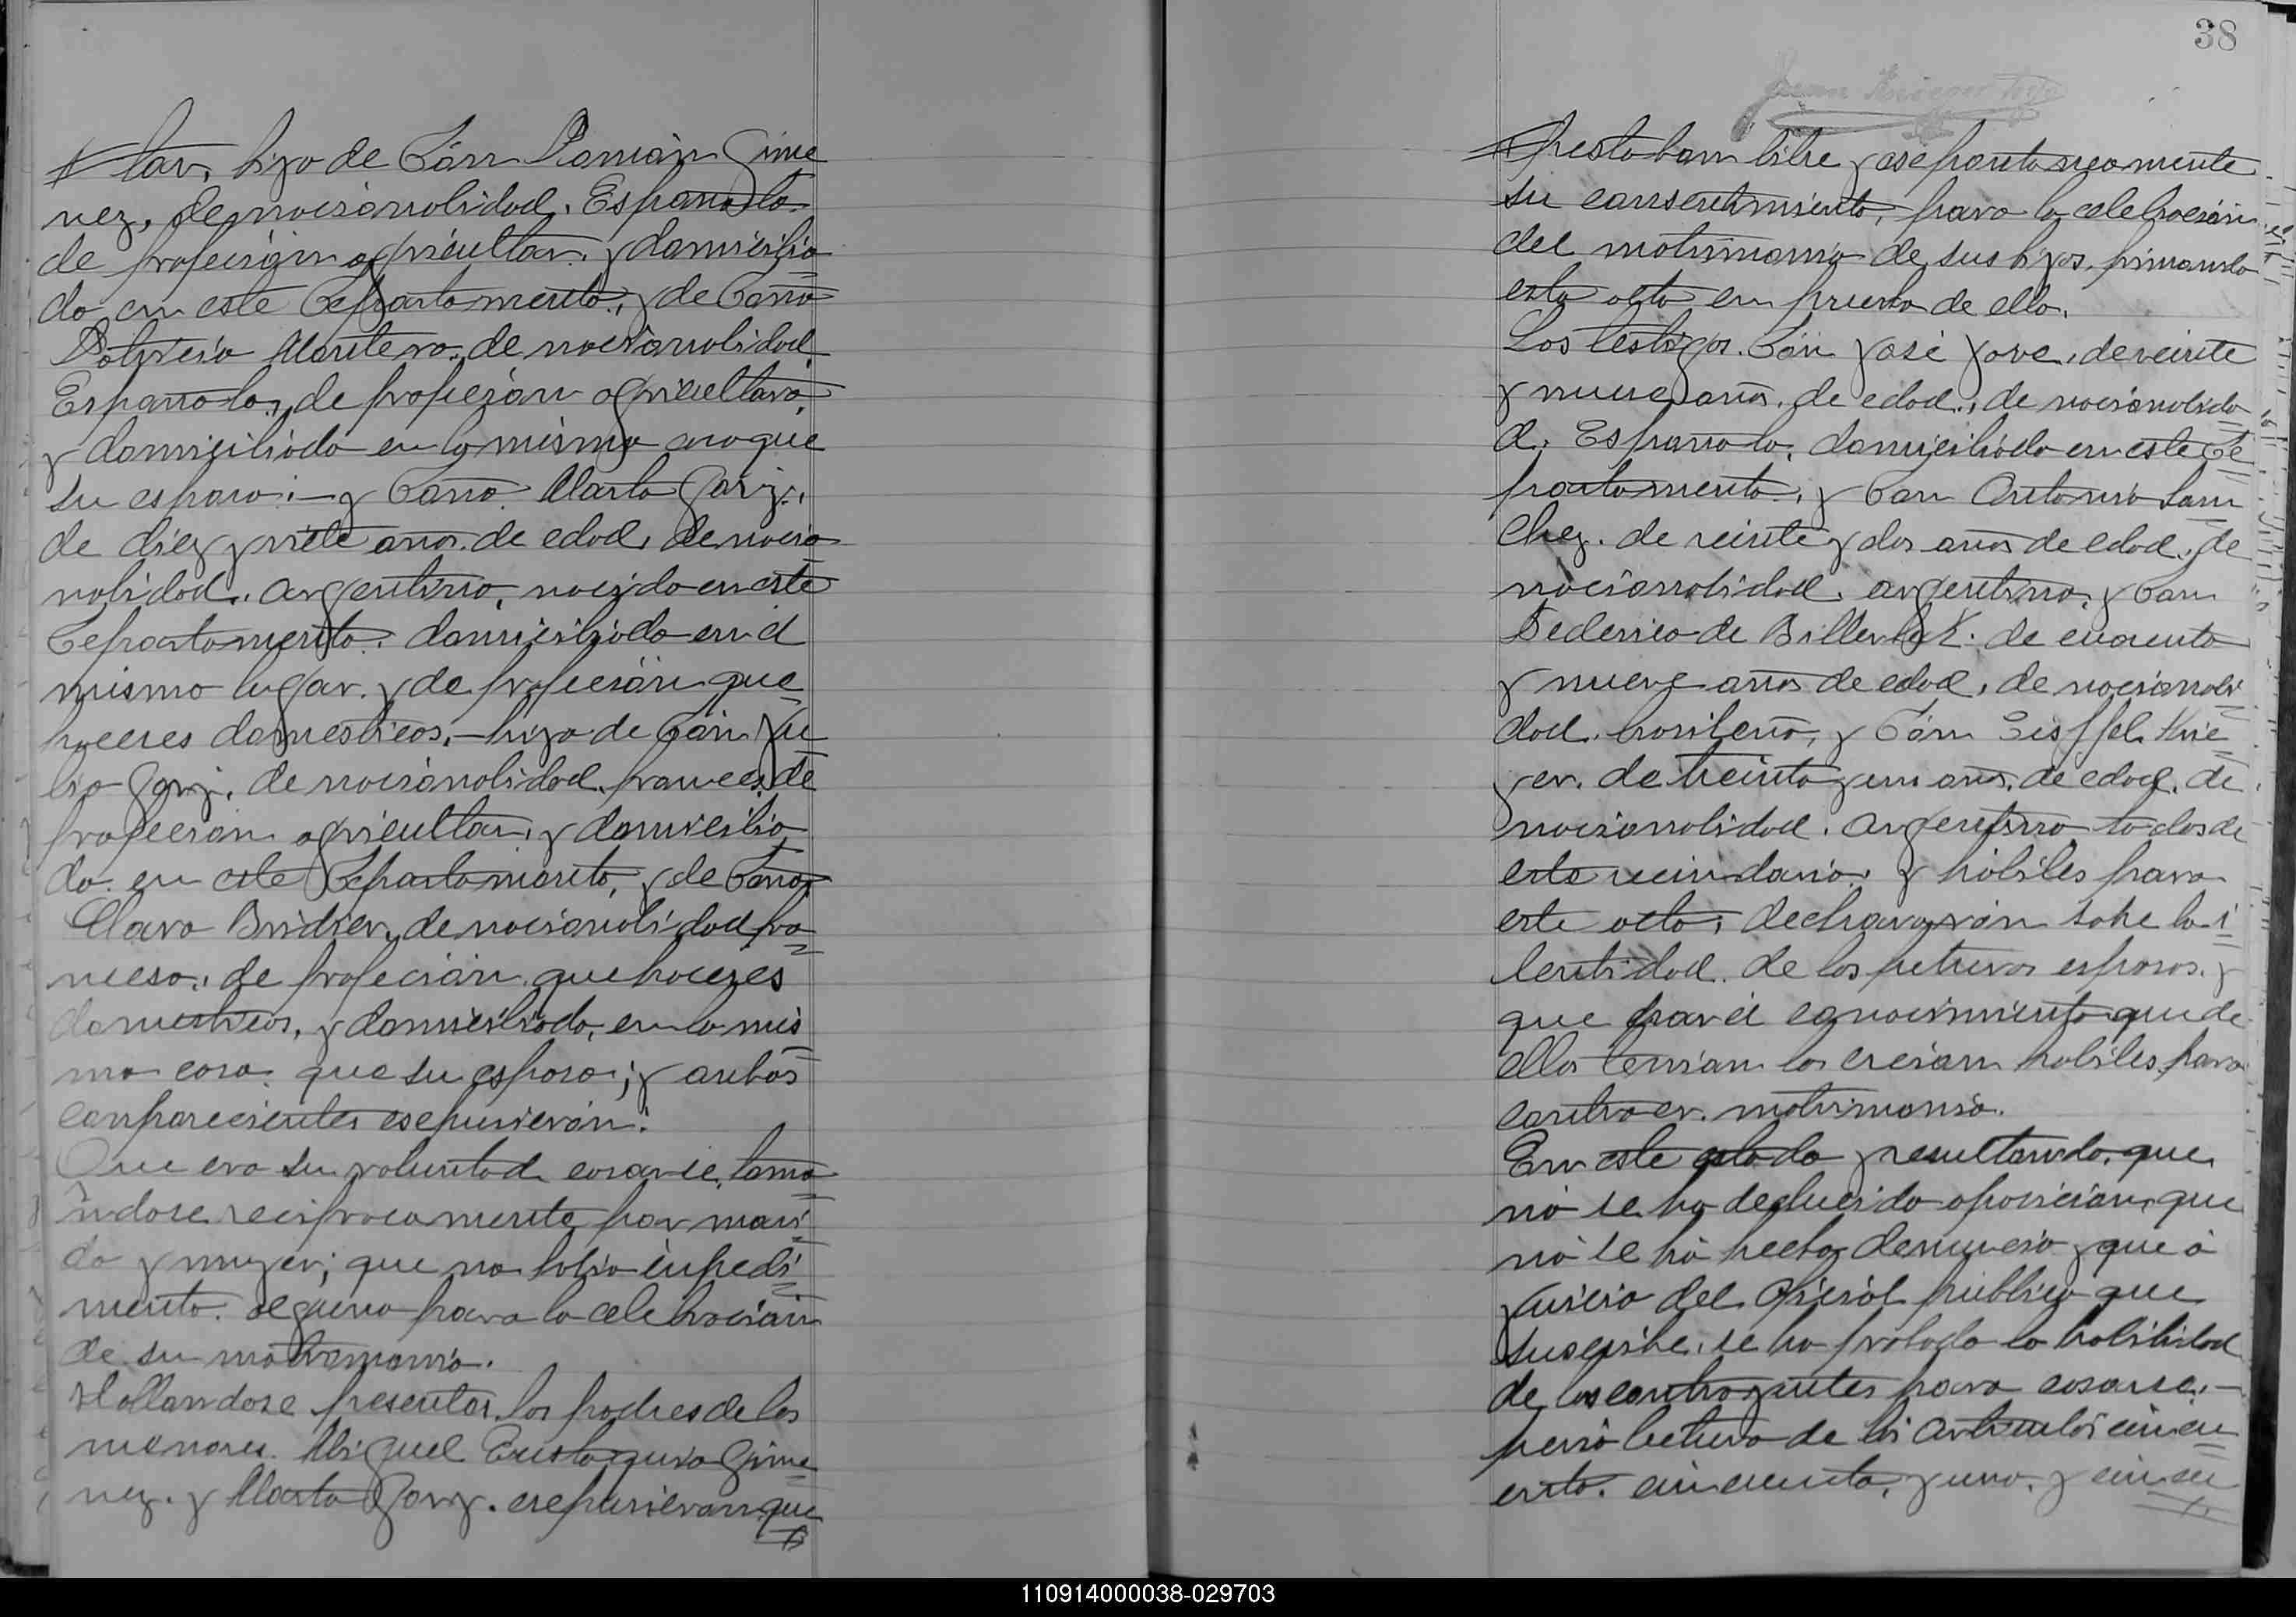 tor, hijo de Dón Román Gime
nez, de nacionalidad, Española
de profeción agricultor, y domicilia
do en este Departamento, y de Doña
Patricia Montero, de nacionalidad
Española, de profeción agricultora,
y domiciliada en la misma casa que
su esposo:- y Doña Marta Garz.,
de diez y siete años de edad, de nacio
nalidad, argentina, nacida en este
Departamento, domiciliada en el
mismo lugar, y de profeción que
haceres domesticos,- hija de Dón Ju
lio Garz, de nacionalidad, frances, de
profeción agricultor, y domicilia
do en este Departamento, y de Doña
Clara Bridier, de nacionalidad fra
ncesa, de profeción que haceres
domesticos, y domiciliada, en la mis
ma casa que su esposo; y anbos
conparecientes esepusierón:
Que era su voluntad casarse, toma
ndose reciprocamente por mari
do y mujer; que no habia inpedi
mento alguno para la celebración
de su matrimonio.
Hallandose presentes los padres de los
menores Miguel Eustaquio Gime
nez, y Marta Garz, esepusieron que
38
Prestaban libre y esepontaneamente
su consentimiento, para la celebración
del matrimonio de sus hijos, firmando
esta acta en prueba de ello.
Los testigos Dón José Jove, de veinte
y nueve años de edad, de nacionalida
d, Española, domiciliado en este De
partamento, y Don Antonio San
chez, de veinte y dos años de edad, de
nacionalidad, argentino, y Don
Federico de Billerbek de cuarenta
y nueve años de edad, de nacionali
dad brasileño, y Dón Krie
ger, de treinta y un años de edad, de
nacionalidad, argentino todos de
este vecindario, y hábiles para
este acto, declararón sobre la i
dentidad de los futuros esposos, y
que por el conocimiento que de
ellos tenian los creian habiles para
contraer matrimonio.
En este estado y resultando, que
nó se ha deducido oposición, que
nó se há hecho denuncia y que á
juicio del Oficial público que
suscribe, se ha probado la habilidad
de los contrayentes para casarse,-
lectura de los articulos cincu
enta, cincuenta y uno, y cincu
110914000038-029703